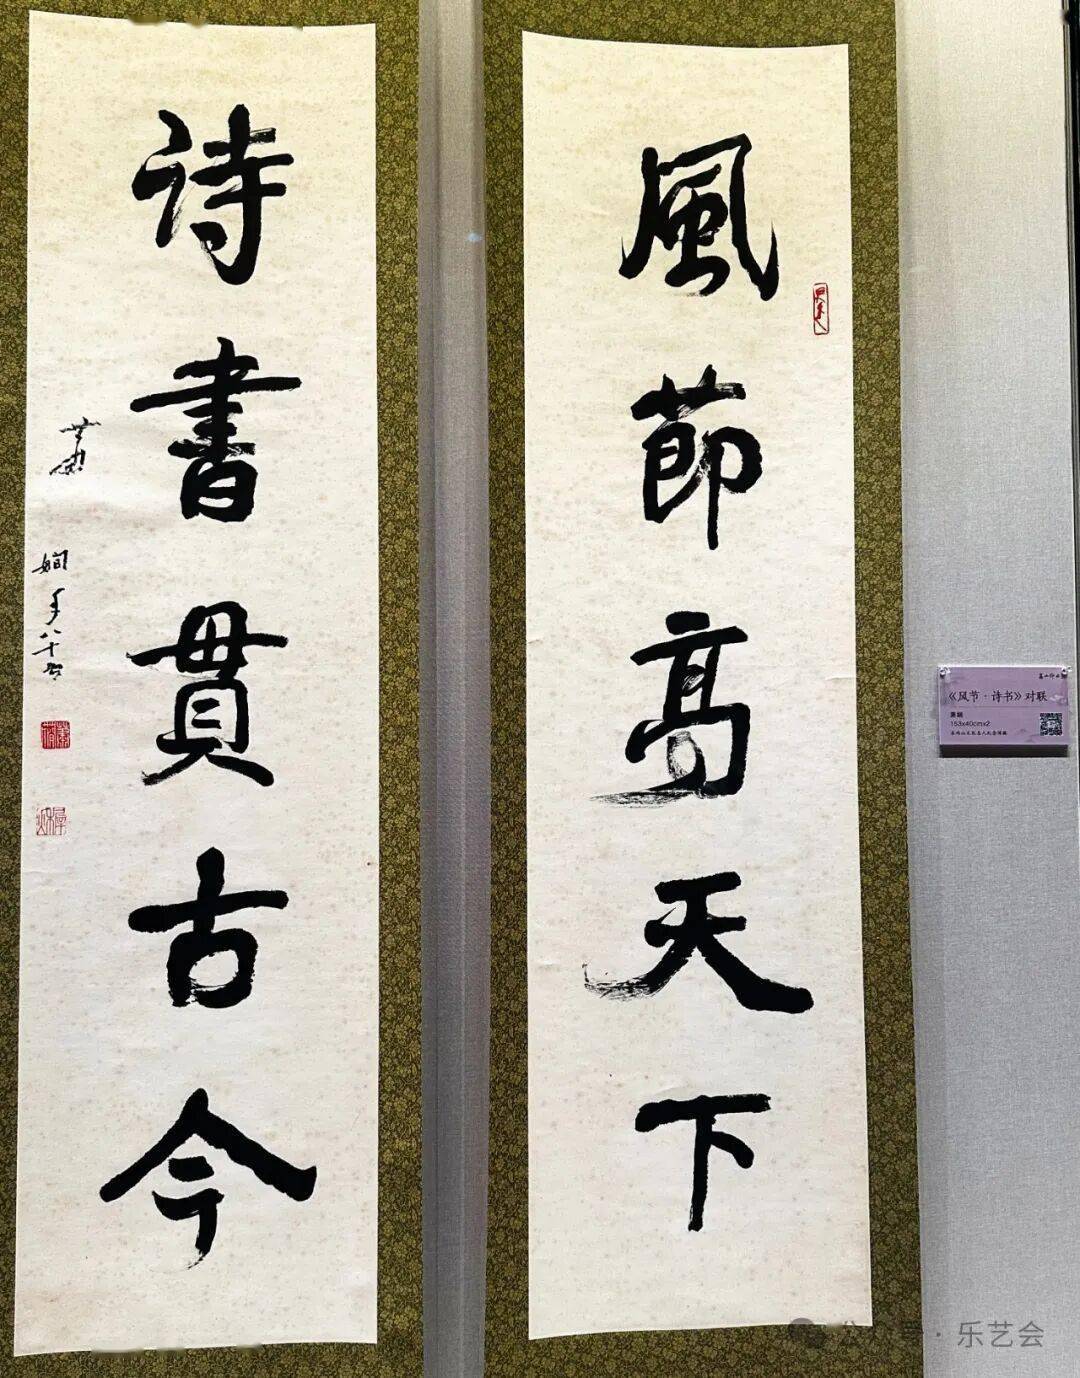 風節高天下
詩書貫古今
萧娴 年八十
《风节·诗书》对联
萧娴
153x40cmx2
公众号·乐艺会